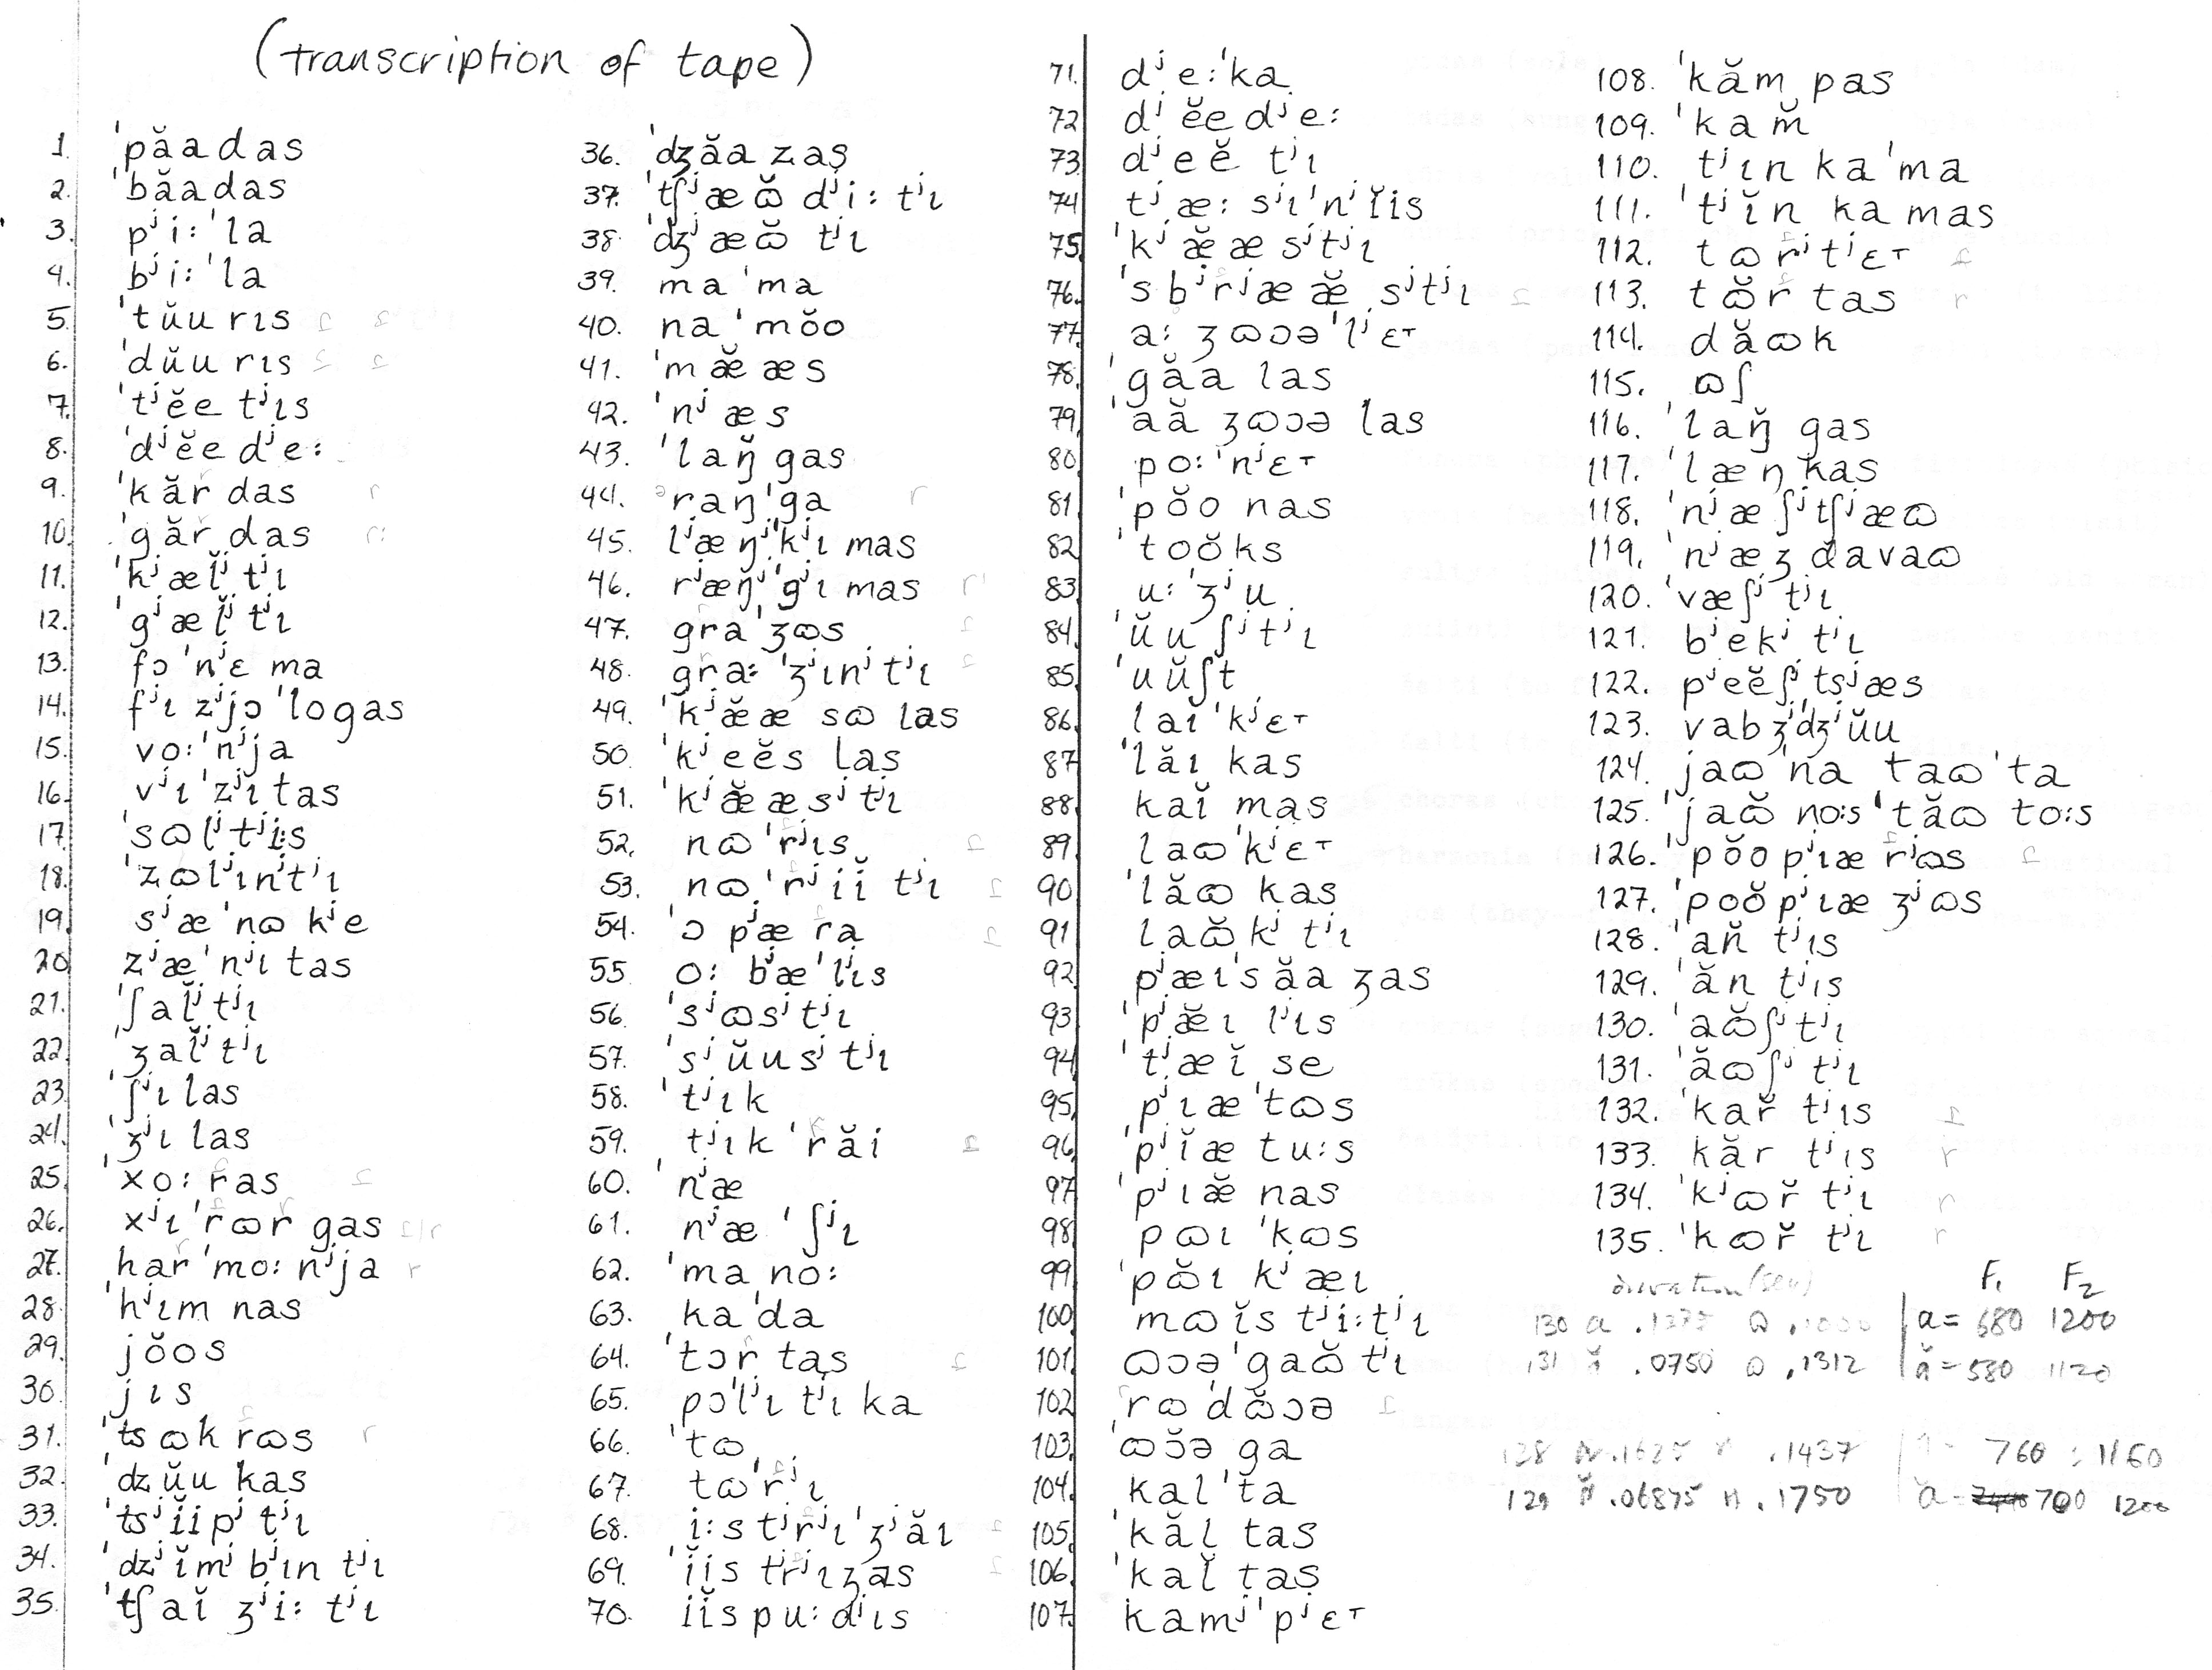 (transcription of tape)
1. ˈpăadas
2. ˈbăadas
3. pʲi:ˈla
4. bʲi:ˈla
5. ˈtŭurɩs
6. ˈdŭurɩs
7. ˈtʲĕetʲɩs
8. ˈdʲĕedʲe:
9. ˈkăr̆das
10. ˈgăr̆das
11. ˈkʲæl̆ʲtʲɩ
12. ˈgʲæl̆ʲtʲɩ
13. fɔˈnʲɛma
14. fʲɩzʲjɔˈlogas
15. vo:ˈnʲja
16. vʲɩˈzʲɩtas
17. ˈsɷlʲtʲi:s
18. ˈzɷlʲɩnʲtʲɩ
19. sʲæˈnɷkʲe
20. zʲæˈnʲɩtas
21. ˈʃal̆ʲtʲɩ
22. ˈʒal̆ʲtʲɩ
23. ˈʃʲɩlas
24. ˈʒʲɩlas
25. ˈxo:ras
26. xʲɩˈrɷrgas
27. harˈmo:nʲja
28. ˈhʲɩmnas
29. jŏos
30. jɩs
31. ˈtsɷkrɷs
32. ˈdzŭukas
33. ˈtsʲĭipʲtʲɩ
34. ˈdzʲĭmʲbʲɩntʲɩ
35. ˈtʃaĭʒʲi:tʲɩ
36. ˈdʒăaʒas
37. ˈtʃʲæɷ̆dʲi:tʲɩ
38. ˈdʒʲæɷ̆tʲɩ
39. maˈma
40. naˈmŏo
41. ˈmæ̆æs
42. ˈnʲæs
43. ˈlaŋ̆gas
44. ᵊraŋˈga
45. lʲæŋʲˈkʲɩmas
46. rʲæŋ̆ʲˈgʲɩmas
47. graˈʒɷs
48. gra:ˈʒʲɩnʲtʲɩ
49. ˈkʲæ̆æsɷlas
50. ˈkʲeĕslas
51. ˈkʲæ̆æsʲtʲɩ
52. nɷˈrʲɩs
53. nɷˈrʲiĭtʲɩ
54. ˈɔpʲæra
55. o:bʲæˈlʲɩs
56. ˈsʲɷsʲtʲɩ
57. ˈsʲŭusʲtʲɩ
58. ˈtʲɩk
59. tʲɩkˈrăi
60. ˈnʲæ
61. nʲæˈʃʲɩ
62. ˈmano:
63. kaˈda
64. ˈtɔrtas
65. pɔˈlʲɩtʲɩka
66. ˈtɷ
67. tɷˈrʲɩ
68. i:stʲrʲɩˈʒʲăɩ
69. ˈĭistʲrʲɩʒas
70. iĭspu:dʲɩs
71. dʲe:ˈka
72. dʲĕedʲe:
73. dʲeĕtʲɩ
74. tʲæ:sʲɩˈnʲĭis
75. ˈkʲæ̆æsʲtʲɩ
76. ˈsbʲrʲææ̆sʲtʲɩ
77. a:ʒɷɔəˈlʲɛ⊤
78. ˈgăalas
79. ˈaăʒɷɔəlas
80. po:ˈnʲɛ⊤
81. ˈpŏonas
82. ˈtoŏks
83. u:ˈʒʲu
84. ˈŭuʃʲtʲɩ
85. ˈuŭʃt
86. laĭˈkʲɛ⊤
87. ˈlăɩkas
88. kaĭmas
89. laɷˈkʲɛ⊤
90. ˈlăɷkas
91. laɷ̆kʲtʲɩ
92. pʲæɩˈsăaʒas
93. ˈpʲæ̆ɩlʲɩs
94. ˈtʲæĭse
95. pʲɩæˈtɷs
96. ˈpʲĭætu:s
97. ˈpʲɩæ̆nas
98. pɷɩˈkɷs
99. ˈpɷ̆ɩkʲæɩ
100. mɷĭstʲi:tʲɩ
101. ɷɔəˈgaɷ̆tʲɩ
102. rɷˈdɷ̆ɔə
103. ˈɷɔ̆əga
104. kalˈta
105. ˈkăltas
106. ˈkal̆tas
107. kamʲˈpʲɛ⊤
108. ˈkămpas
109. ˈkam̆
110. tʲɩnkaˈma
111. ˈtʲĭnkamas
112. tɷrʲtʲɛ⊤
113. tɷ̆rtas
114. dăɷk
115. ɷʃ
116. ˈlaŋ̆gas
117. ˈlæŋkas
118. ˈnʲæʃʲtʃʲæɷ
119. ˈnʲæʒdavaɷ
120. ˈvæʃʲtʲɩ
121. bʲekʲtʲɩ
122. pʲeĕʃʲtsʲæs
123. vabʒʲdʒʲŭu
124. jaɷˈna taɷˈta
125. ˈjaɷ̆no:s ˈtăɷto:s
126. ˈpŏopʲɩærʲɷs
127. ˈpoŏpʲɩæʒʲɷs
128. ˈan̆tʲɩs
129. ˈăntʲɩs
130. ˈaɷ̆ʃʲtʲɩ
131. ˈăɷʃʲtʲɩ
132. ˈkar̆tʲɩs
133. kărtʲɩs
134. ˈkʲɷr̆tʲɩ
135. ˈkɷr̆tʲɩ
duration (sec) F₁ F₂
130 a .1375 ɷ a = 680 1200
131 ă .0750 ɷ .1312 ă = 580 1120
128 .1625 .1437 760 1160
129 .06875 n .1750 ă = 700 1200